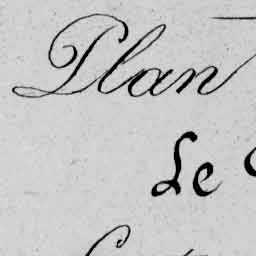 Plan
Le